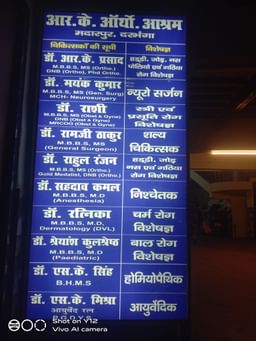 आर.के. ऑर्थो. आश्रम
मदारपुर, दरभंगा
चिकित्सकों की सूची विशेषज्ञ
डॉ. आर.के. प्रसाद
M.B.B.S, MS (Ortho.)
DNB (Ortho), Phd Ortho.
हड्डी, जोड़, नस
पोलियो एवं गठिया
रोग विशेषज्ञ
डॉ. मयंक कुमार
M.B.B.S, MS (Gen. Surg)
MCH- Neurosurgery
न्यूरो सर्जन
डॉ. राशी
M.B.B.S, MS (Obst & Gyne)
DNB (Obst & Gyne)
MRCOG (Obst & Gyne)
स्त्री एवं
प्रसूति रोग
विशेषज्ञ
डॉ. रामजी ठाकुर
M.B.B.S, MS
(General Surgeon)
शल्य
चिकित्सक
डॉ. राहुल रंजन
M.B.B.S, MS (Ortho.)
Gold Medalist, DNB (Ortho.)
हड्डी, जोड़
नस एवं गठिया
रोग विशेषज्ञ
डॉ. सहदाव कमल
M.B.B.S, M.D
(Anesthesia)
निश्चेतक
डॉ. रत्निका
M.B.B.S, M.D,
Dermatology (DVL)
चर्म रोग
विशेषज्ञ
डॉ. श्रेयांश कुलश्रेष्ठ
M.B.B.S, M.D
(Paediatric)
बाल रोग
विशेषज्ञ
डॉ. एस.के. सिंह
B.H.M.S
होमियोपैथिक
डॉ. एस.के. मिश्रा
आयुर्वेद रत्न
आयुर्वेदिक
Shot on Y12
Vivo AI camera